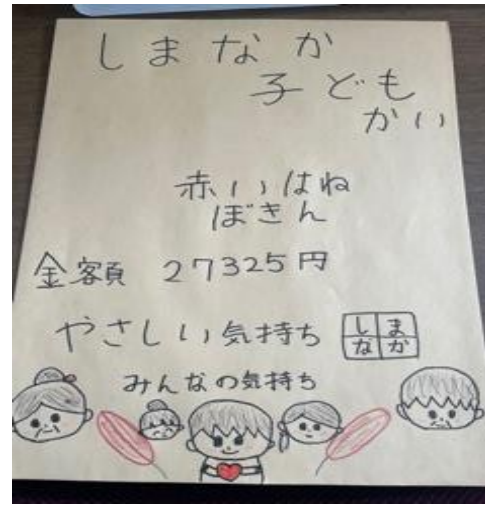 しまなか
子ども
かい
赤いはね
ぼきん
金額 27325円
やさしい気持ち
しま
なか
みんなの気持ち